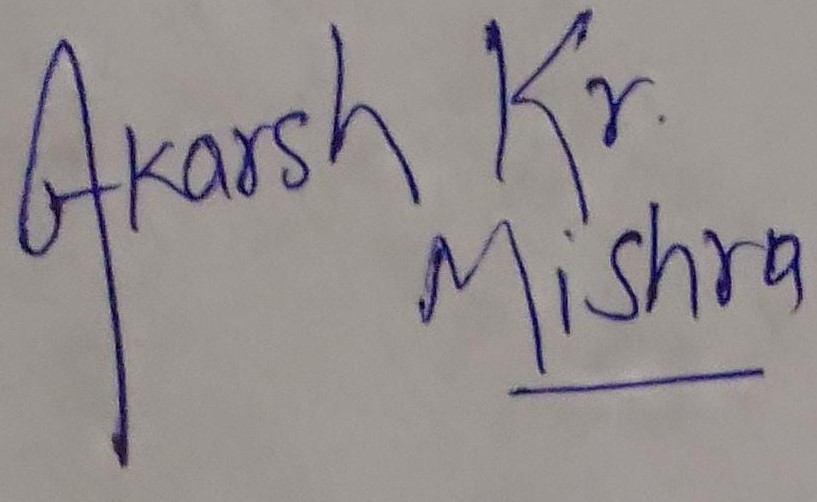 Akarsh Kr.
Mishra